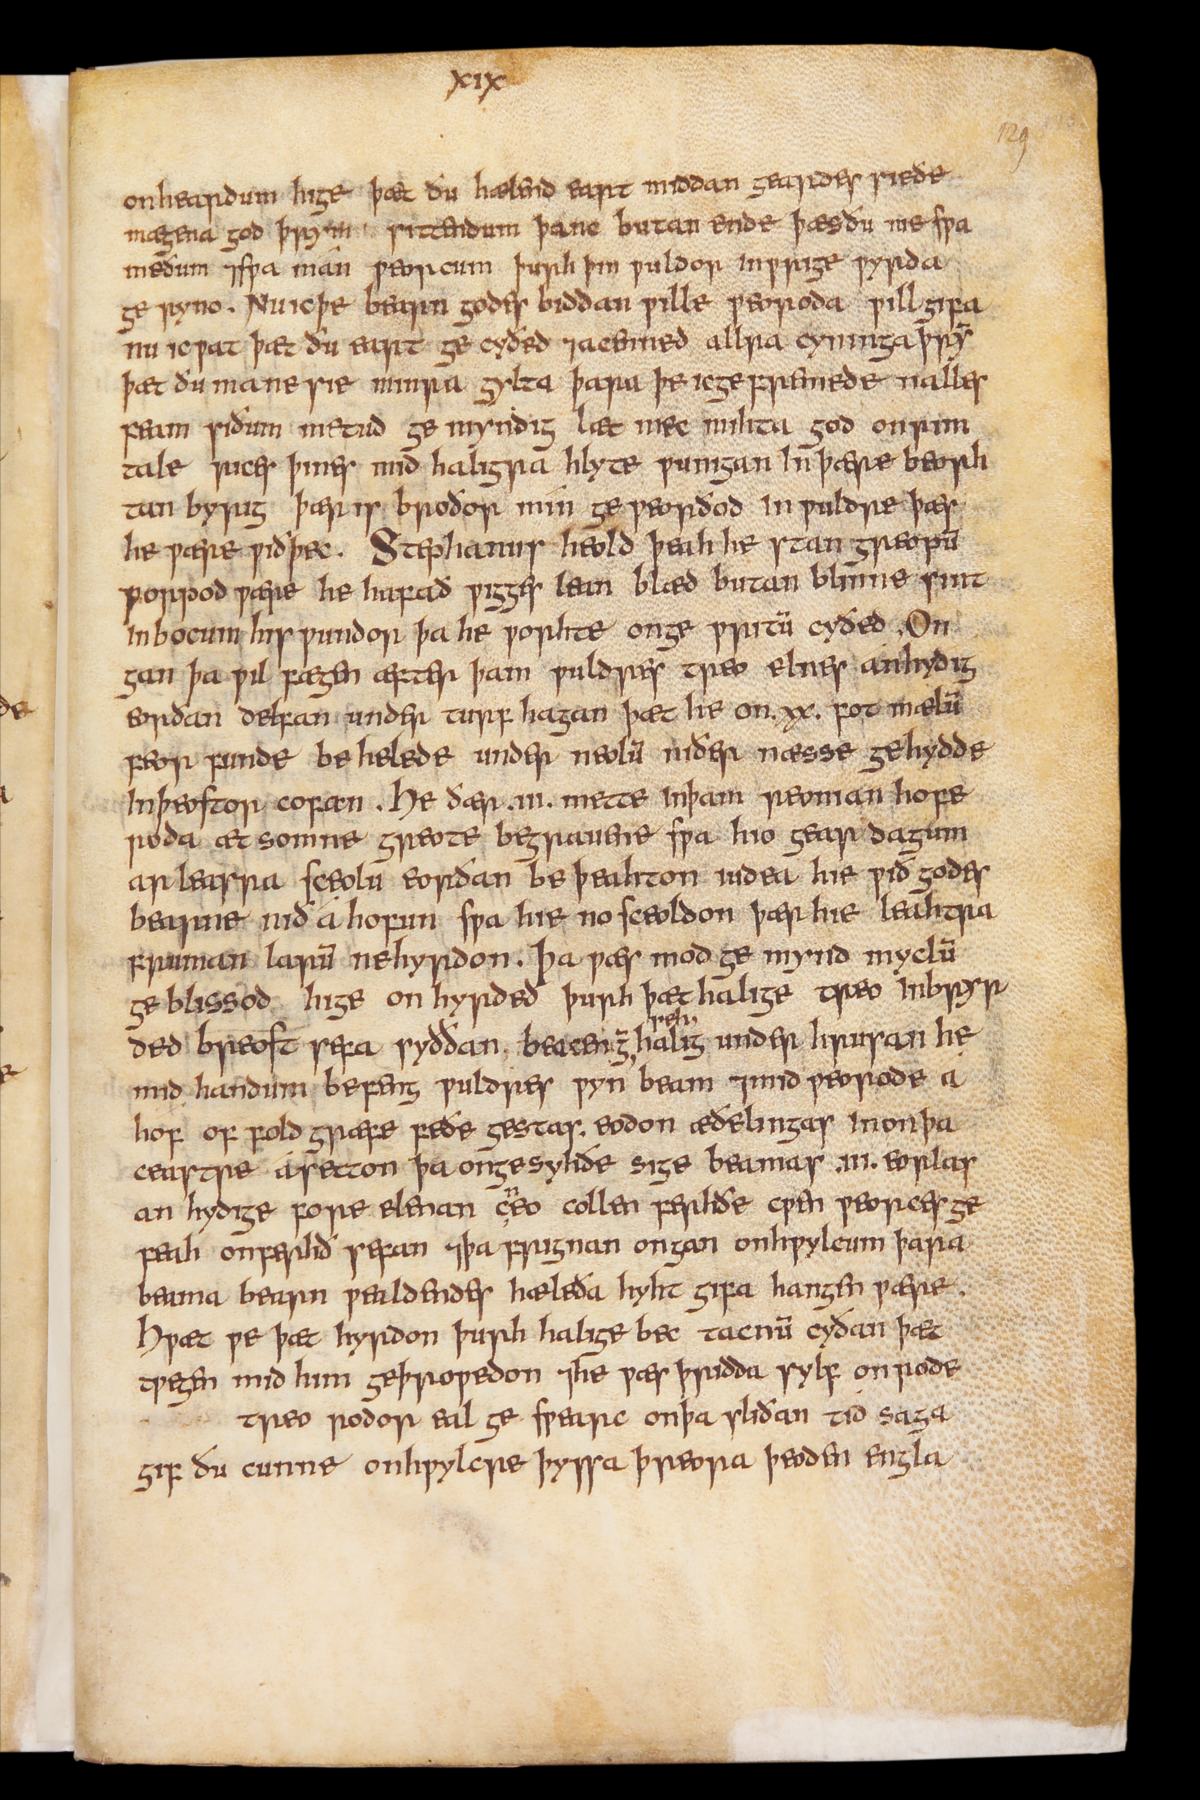 xix
129
onheardum hige þæt ðu hælend eart middan geardes siede
mægena god þrym sittendum þanc butan ende þæsðu me swa
meðum ⁊swa man weorcum þurh þin wuldor inwrige wyrda
ge ryno. Nu icþe bearn godes biddan wille weoroda willgifa
nu ic wat þæt ðu eart ge cyðed ⁊acenned allra cyninga þrȳ
þæt ðu mane sie minra gylta þara þe icgefremede nalles
feam siðum metud ge myndig læt mec mihta god on rim
tale rices þines mid haligra hlyte wunigan In þære beorh
tan byrig þær is broðor min ge weorðod in wuldre þæs
he wære wið þec. Stephanus heold þeah he stan greopū
worpod wære he hafað wigges lean blæd butan blinne sint
in bocum his wundor þa he worhte on ge writū cyðed. On
gan þa wil fægen æfter þam wuldres treo elnes anhydig
eorðan delfan under turf hagan þæt he on .xx. fot mælū
feor funde be helede under neolū niðer næsse gehydde
In þeostor cofan. He ðær .iii. mette inþam reonian hofe
roda æt somne greote begrauene swa hio gear dagum
ar leasra sceolu eorðan be þeahton iudea hie wið godes
bearne nið á hofun swa hie no sceoldon þær hie leahtra
fruman larū ne hyrdon. Þa wæs mod ge mynd myclū
ge blissod hige on hyrded þurh þæt halige treo Inbryr
ded breost sefa syððan beacen geseh halig under hrusan he
mid handum befeng wuldres wyn beam ⁊mid weorode a
hof of fold græfe feðe gestas. eodon æðelingas In on þa
ceastre ásetton þa on gesyhðe sige beamas .iii. eorlas
an hydige fore elenan cneo collen ferhðe cwen weorces ge
feah on ferhð sefan ⁊þa frignan ongan on hwylcum þara
beama bearn wealdendes hæleða hyht gifa hangen wære.
Hwæt we þæt hyrdon þurh halige bec tacnū cyðan þæt
twegen mid him geþrowedon ⁊he wæs þridda sylf on rode
treo rodor eal ge swearc on þa sliðan tid saga
gif ðu cunne on hwylcre þyssa þreora þeoden engla